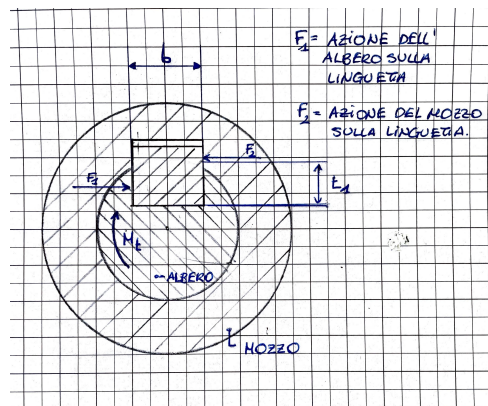 F1 = AZIONE DELL'
ALBERO SULLA
LINGUETTA
F2 = AZIONE DEL MOZZO
SULLA LINGUETTA.
b
F2
F1
t1
Mt
ALBERO
MOZZO